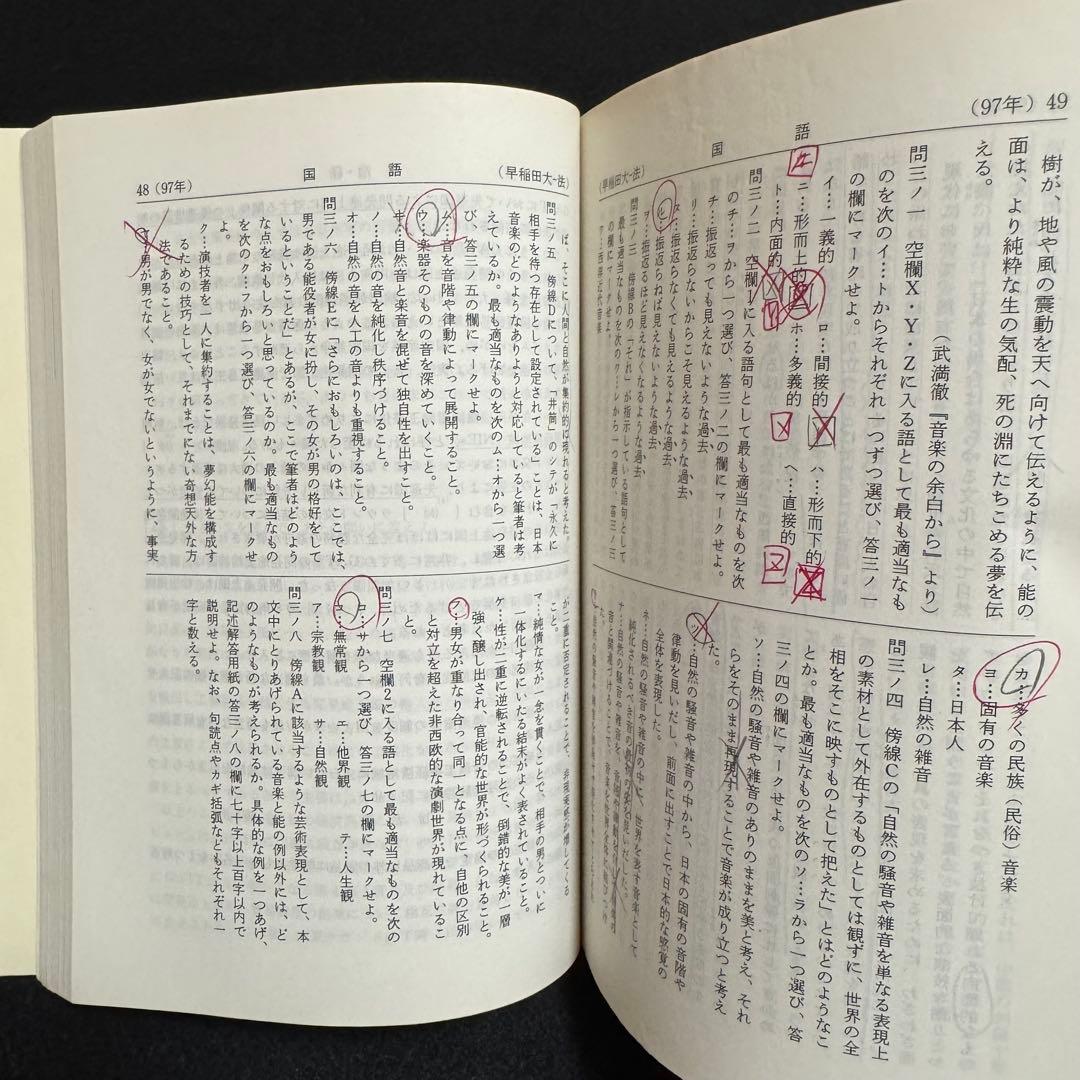 (97年) 49
国語
(早稲田大-法)
樹が、地や風の震動を天へ向けて伝えるように、能の
面は、より純粋な生の気配、死の淵にたちこめる夢を伝
える。
（武満徹『音楽の余白から』より）
問三ノ一 空欄X・Y・Zに入る語として最も適当なも
のを次のイ…トからそれぞれ一つずつ選び、答三ノ一
の欄にマークせよ。
イ…一義的 ロ…間接的 ハ…形而下的
ニ…形而上的 ホ…多義的 ヘ…直接的
ト…内面的
問三ノ二 空欄1に入る語句として最も適当なものを次
のチ…ヲから一つ選び、答三ノ二の欄にマークせよ。
チ…振返っても見えないような過去、
リ…振返らないからこそ見えるような過去、
ヌ…振返らなくても見えるような過去、
ル…振返らねば見えないような過去、
ヲ…振返るほど見えなくなるような過去、
問三ノ三 傍線Bの「それ」が指示している語句として
最も適当なものを次のワ…レから一つ選び、答三ノ三
の欄にマークせよ。
ワ…西洋近代音楽
カ…多くの民族（民俗）音楽
ヨ…固有の音楽
タ…日本人
レ…自然の雑音
問三ノ四 傍線Cの「自然の騒音や雑音を単なる表現上
の素材として外在するものとしては観ずに、世界の全
相をそこに映すものとして把えた」とはどのようなこ
とか。最も適当なものを次のソ…ラから一つ選び、答
三ノ四の欄にマークせよ。
ソ…自然の騒音や雑音のありのままを美と考え、それ
らをそのまま再現することで音楽が成り立つと考え
た。
ツ…自然の騒音や雑音の中から、日本の固有の音階や
律動を見いだし、前面に出すことで日本的な感覚の
全体を表現した。
ネ…自然の騒音や雑音の中に、世界を表す音楽として
48 (97年)
国語
(早稲田大-法)
ば、そこに人間と自然が集約的は現れると考えた。
問三ノ五 傍線Dについて、「井筒」のシテが「永久に
相手を待つ存在として設定されている」ことは、日本
音楽のどのようなありようと対応していると筆者は考
えているか。最も適当なものを次のム…オから一つ選
び、答三ノ五の欄にマークせよ。
ム…音を音階や律動によって展開すること。
ウ…楽器そのものの音を深めていくこと。
ヰ…自然音と楽音を混ぜて独自性を出すこと。
ノ…自然の音を純化し秩序づけること。
オ…自然の音を人工の音よりも重視すること。
問三ノ六 傍線Eに「さらにおもしろいのは、ここでは、
男である能役者が女に扮し、その女が男の格好をして
いるということだ」とあるが、ここで筆者はどのよう
な点をおもしろいと思っているのか。最も適当なもの
を次のク…フから一つ選び、答三ノ六の欄にマークせ
よ。
ク…演技者を一人に集約することは、夢幻能を構成す
るための技巧として、それまでにない奇想天外な方
法であること。
ヤ…男が男でなく、女が女でないというように、事実
が二重に否定されることで、非現実感が増してくる
こと。
マ…純情な女が一念を貫くことで、相手の男とついに
一体化するにいたる結末がよく表されていること。
ケ…性が二重に逆転されることで、倒錯的な美が一層
強く醸し出され、官能的な世界が形づくられること。
フ…男女が重なり合って同一となる点に、自他の区別
と対立を超えた非西欧的な演劇世界が現れているこ
と。
問三ノ七 空欄2に入る語として最も適当なものを次の
コ…サから一つ選び、答三ノ七の欄にマークせよ。
コ…無常観 エ…他界観 テ…人生観
ア…宗教観 サ…自然観
問三ノ八 傍線Aに該当するような芸術表現として、本
文中にとりあげられている音楽と能の例以外には、ど
のようなものが考えられるか。具体的な例を一つあげ、
記述解答用紙の答三ノ八の欄に七十字以上百字以内で
説明せよ。なお、句読点やカギ括弧などもそれぞれ一
字と数える。